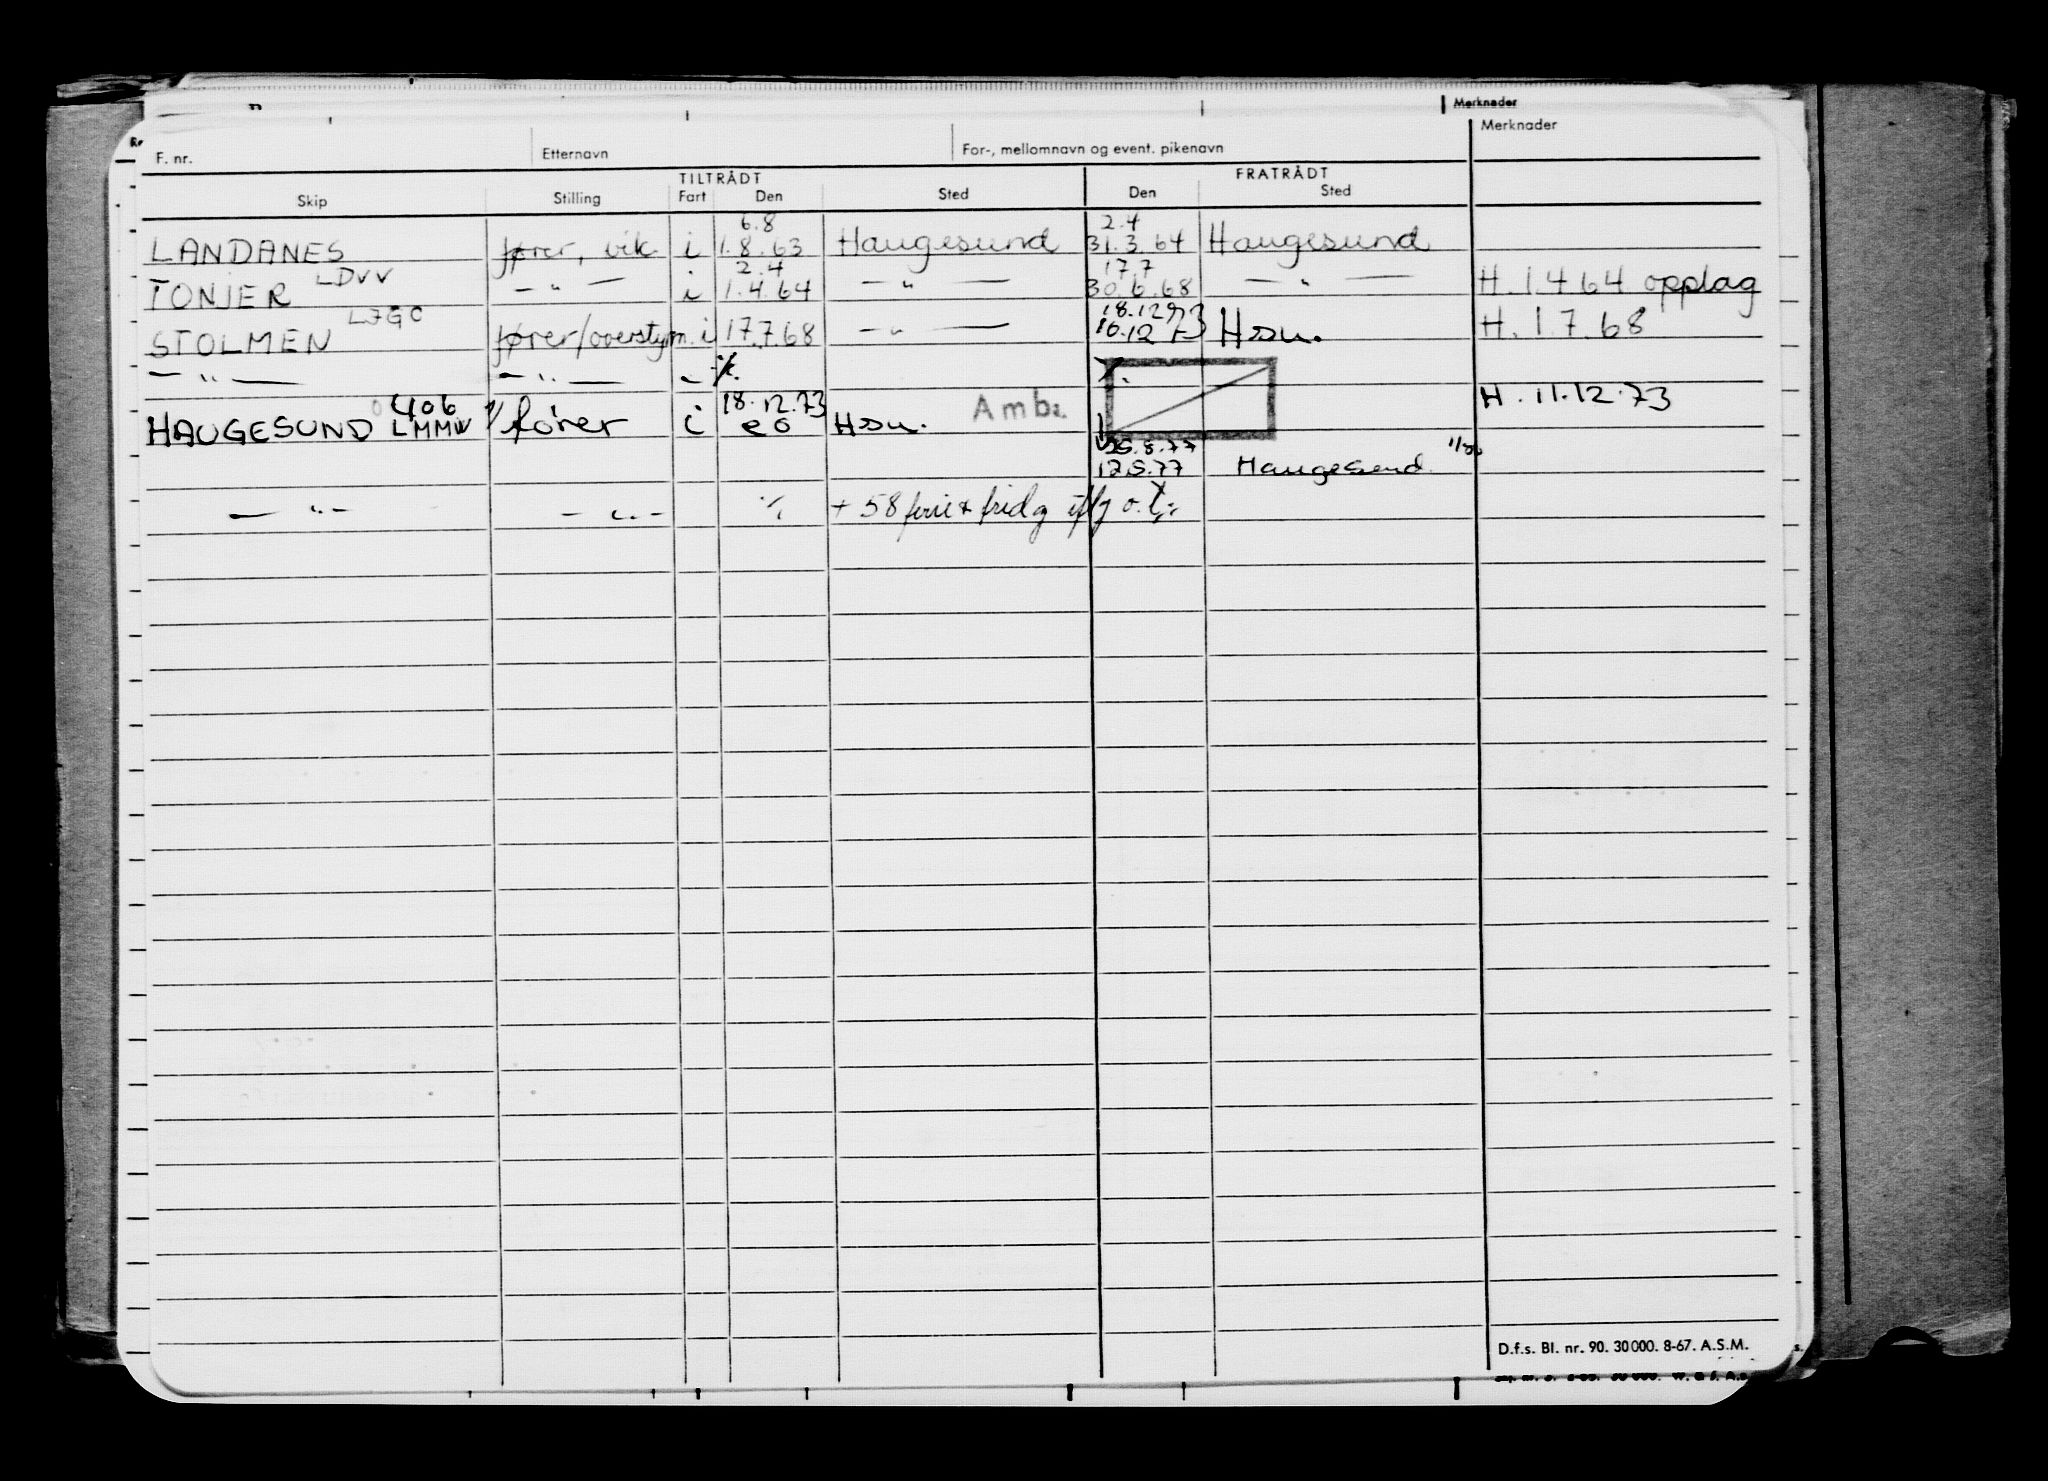 Merknader
F. nr. Etternavn For-, mellomnavn og event. pikenavn Merknader
TILTRÅDT FRATRÅDT
Skip Stilling Fart Den Sted Den Sted
6.8 2.4
LANDANES fører, vik i 1.8.63 Haugesund 31.3.64 Haugesund
LDVV 2.4 17.7
TONJER — " — i 1.4.64 — " — 30.6.68 — " — H. 1.4 64 opplag
LJGC 18.12.73
STOLMEN fører/overstyrm. i 17.7.68 — " — 10.12 73 Hsu. H. 1.7.68
— " — — " — - ·/.
O 406 18.12.73 Amb. H. 11.12.73
HAUGESUND LMMW fører i eo Hsu.
25.8.77
12.5.77 Haugesund
— " — — " — ·/. + 58 ferie + fridg iflg o.l.
D.f.s. Bl. nr. 90. 30 000. 8-67. A.S.M.